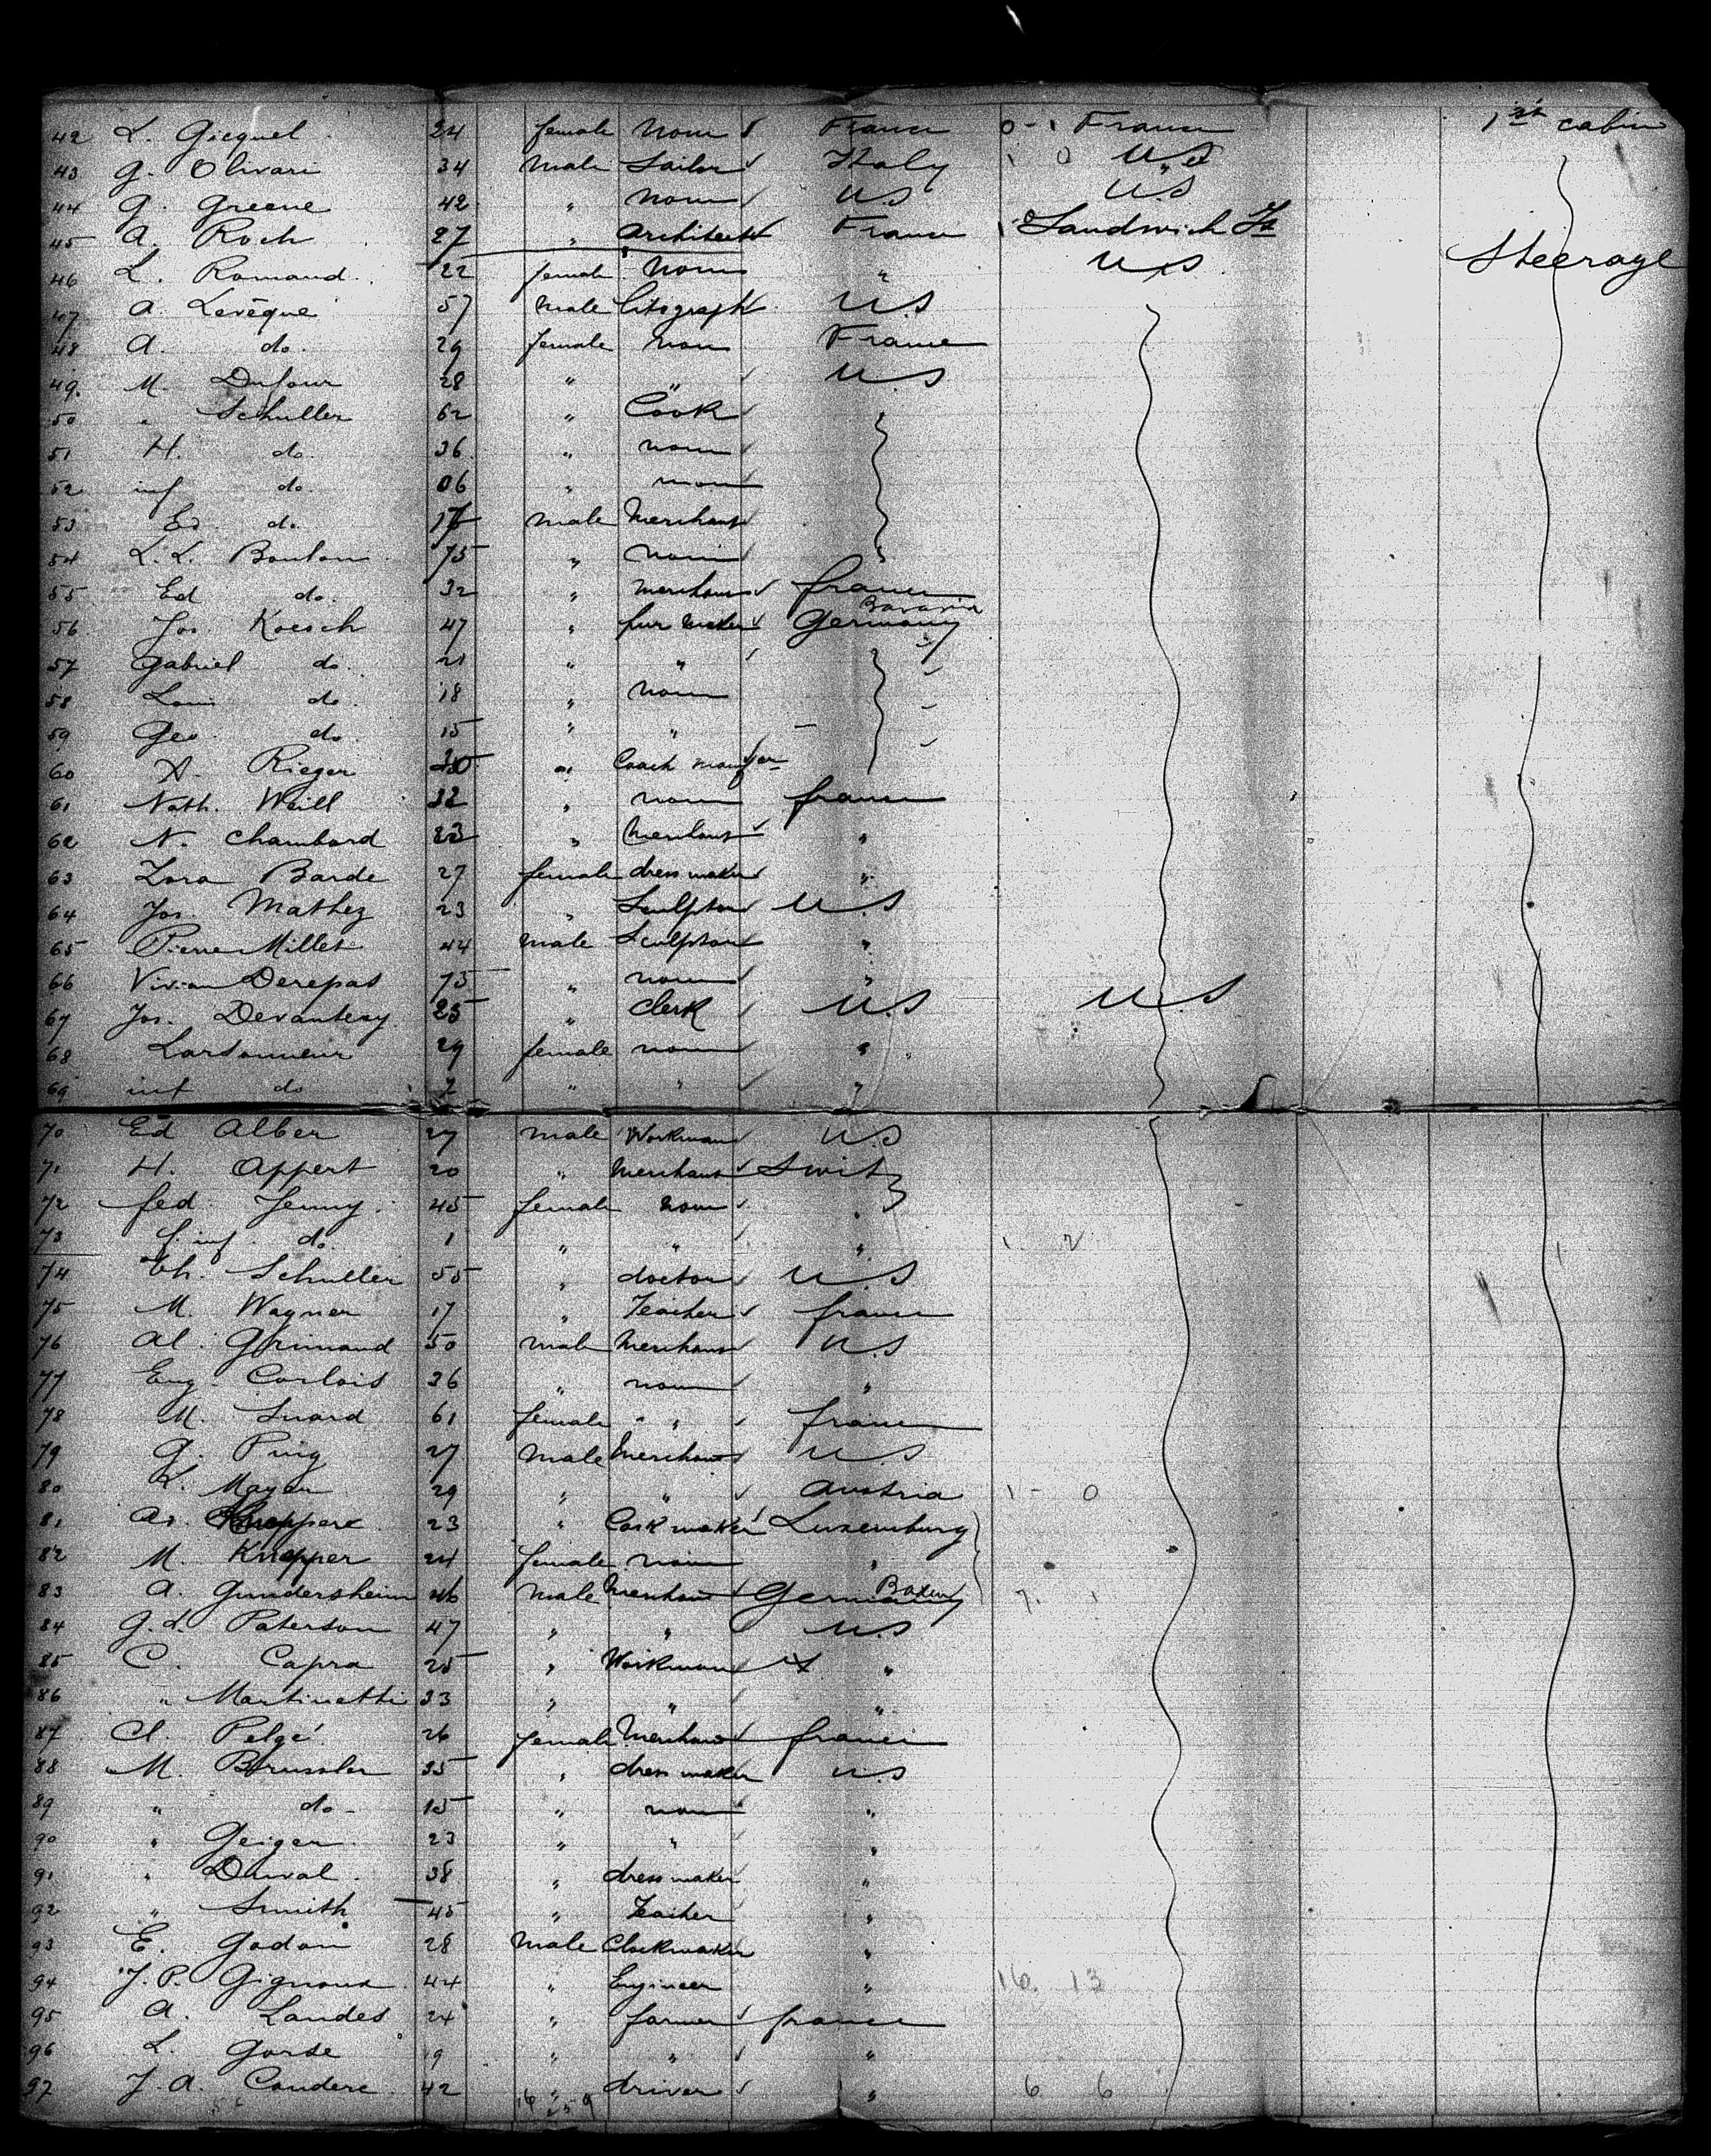 42 L. Gicquel 24 female none France 0-1 France 1st cabin
43 G. Olivari 34 male Sailor Italy 1 0 U.S
44 G. Greene 42 " none U.S U.S
45 A. Roch 27 " architect France Sandwich Is
46 L. Ramaud 22 female none " U.S Steerage
47 A. Levêque 57 male litograph U.S
48 A. do. 29 female none France
49. M. Dufour 28 " " U.S
50 " Schuller 62 " Cook
51 H. do. 36 " none
52 inf do. 06 " none
53 Ed. do. male Merchant
54 L. L. Boulon 75 " none "
55 Ed do. 32 " merchant france
56 Jos. Koesch 47 " fur maker Germany Bavaria
57 Gabriel do. 21 " "
58 Louis do. 18 " none
59 Geo. do. 15 " "
60 A. Rieger " Coach manufer
61 Nath. Weill 32 " none france
62 N. Chambard 23 " Merchant "
63 Zora Barde 27 female dress maker "
64 Jos. Mathez 23 " Sculptor U.S
65 Pierre Millet 44 male Sculptor "
66 Vivian Derepas 75 " none "
67 Jos. Devantery 25 " Clerk U.S U.S
68 Lardonneur 29 female none "
69 inf do 2 " " "
70 Ed Alber 27 male Workman U.S
71 H. Appert 20 " Merchant Switz
72 fed. Jenny 45 female none "
73 f. inf. do. 1 " " " 1 2
74 Ch. Schuller 55 " doctor U.S
75 M. Wagner 17 " Teacher france
76 Al. Grimaud 50 male Merchant U.S
77 Eug. Corlois 36 " none "
78 M. Suard 61 female " " france
79 G. Puig 27 male Merchant U.S
80 K. Mayer 29 " " Austria 1 - 0
81 Ad. 23 " Cask maker Luxemburg
82 M. Knepper 24 female none "
83 A. Gundersheim 46 male Merchant Germany Baden 7. 1
84 G. L. Paterson 47 " " U.S
85 C. Capra 25 " Workman "
86 " Martinetti 33 " " "
87 Cl. Pelgé 26 female Merchant france
88 M. Brussler 35 " dress maker U.S
89 " do. 15 " none "
90 " Geiger 23 " " "
91 " Duval 38 " dress maker "
92 " Smith 45 " Teacher "
93 E. Godon 28 male Clockmaker "
94 J. P. Gignoux 44 " Engineer " 16. 13
95 A. Landes 24 " farmer france
96 L. Gorse 19 " " "
97 J. A. Couderc 42 " driver " 6 6